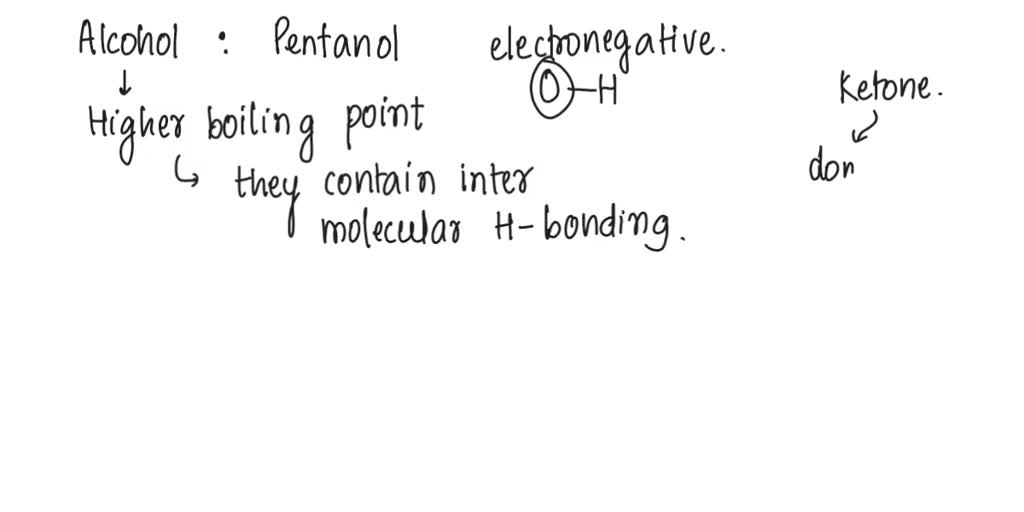 Alcohol : Pentanol electronegative.
O-H
Ketone.
Higher boiling point
don
they contain inter
molecular H-bonding.